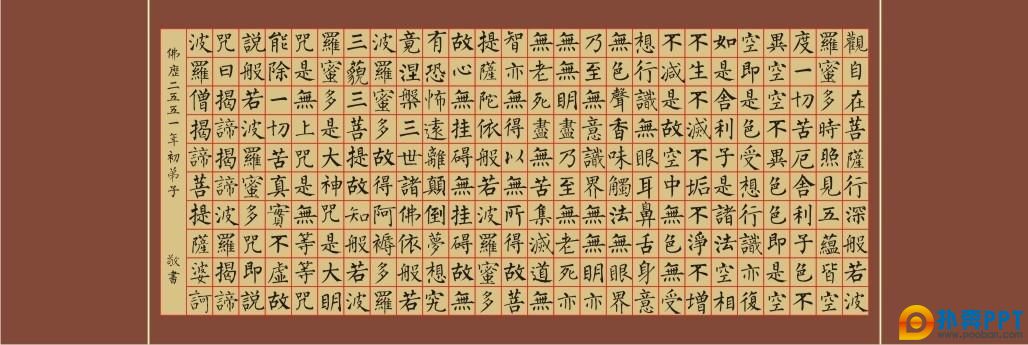 觀自在菩薩行深般若波
羅蜜多時照見五蘊皆空
度一切苦厄舍利子色不
異空空不異色色即是空
空即是色受想行識亦復
如是舍利子是諸法空相
不生不滅不垢不淨不增
不減是故空中無色無受
想行識無眼耳鼻舌身意
無色聲香味觸法無眼界
乃至無意識界無無明亦
無無明盡乃至無老死亦
無老死盡無苦集滅道無
智亦無得以無所得故菩
提薩陀依般若波羅蜜多
故心無挂礙無挂礙故無
有恐怖遠離顛倒夢想究
竟涅槃三世諸佛依般若
波羅蜜多故得阿褥多羅
三藐三菩提故知般若波
羅蜜多是大神咒是大明
咒是無上咒是無等等咒
能除一切苦真實不虛故
説般若波羅蜜多咒即説
咒曰揭諦揭諦波羅揭諦
波羅僧揭諦菩提薩婆訶
佛歷二五五一年初弟子 敬書
扑奔PPT
www.pooban.com